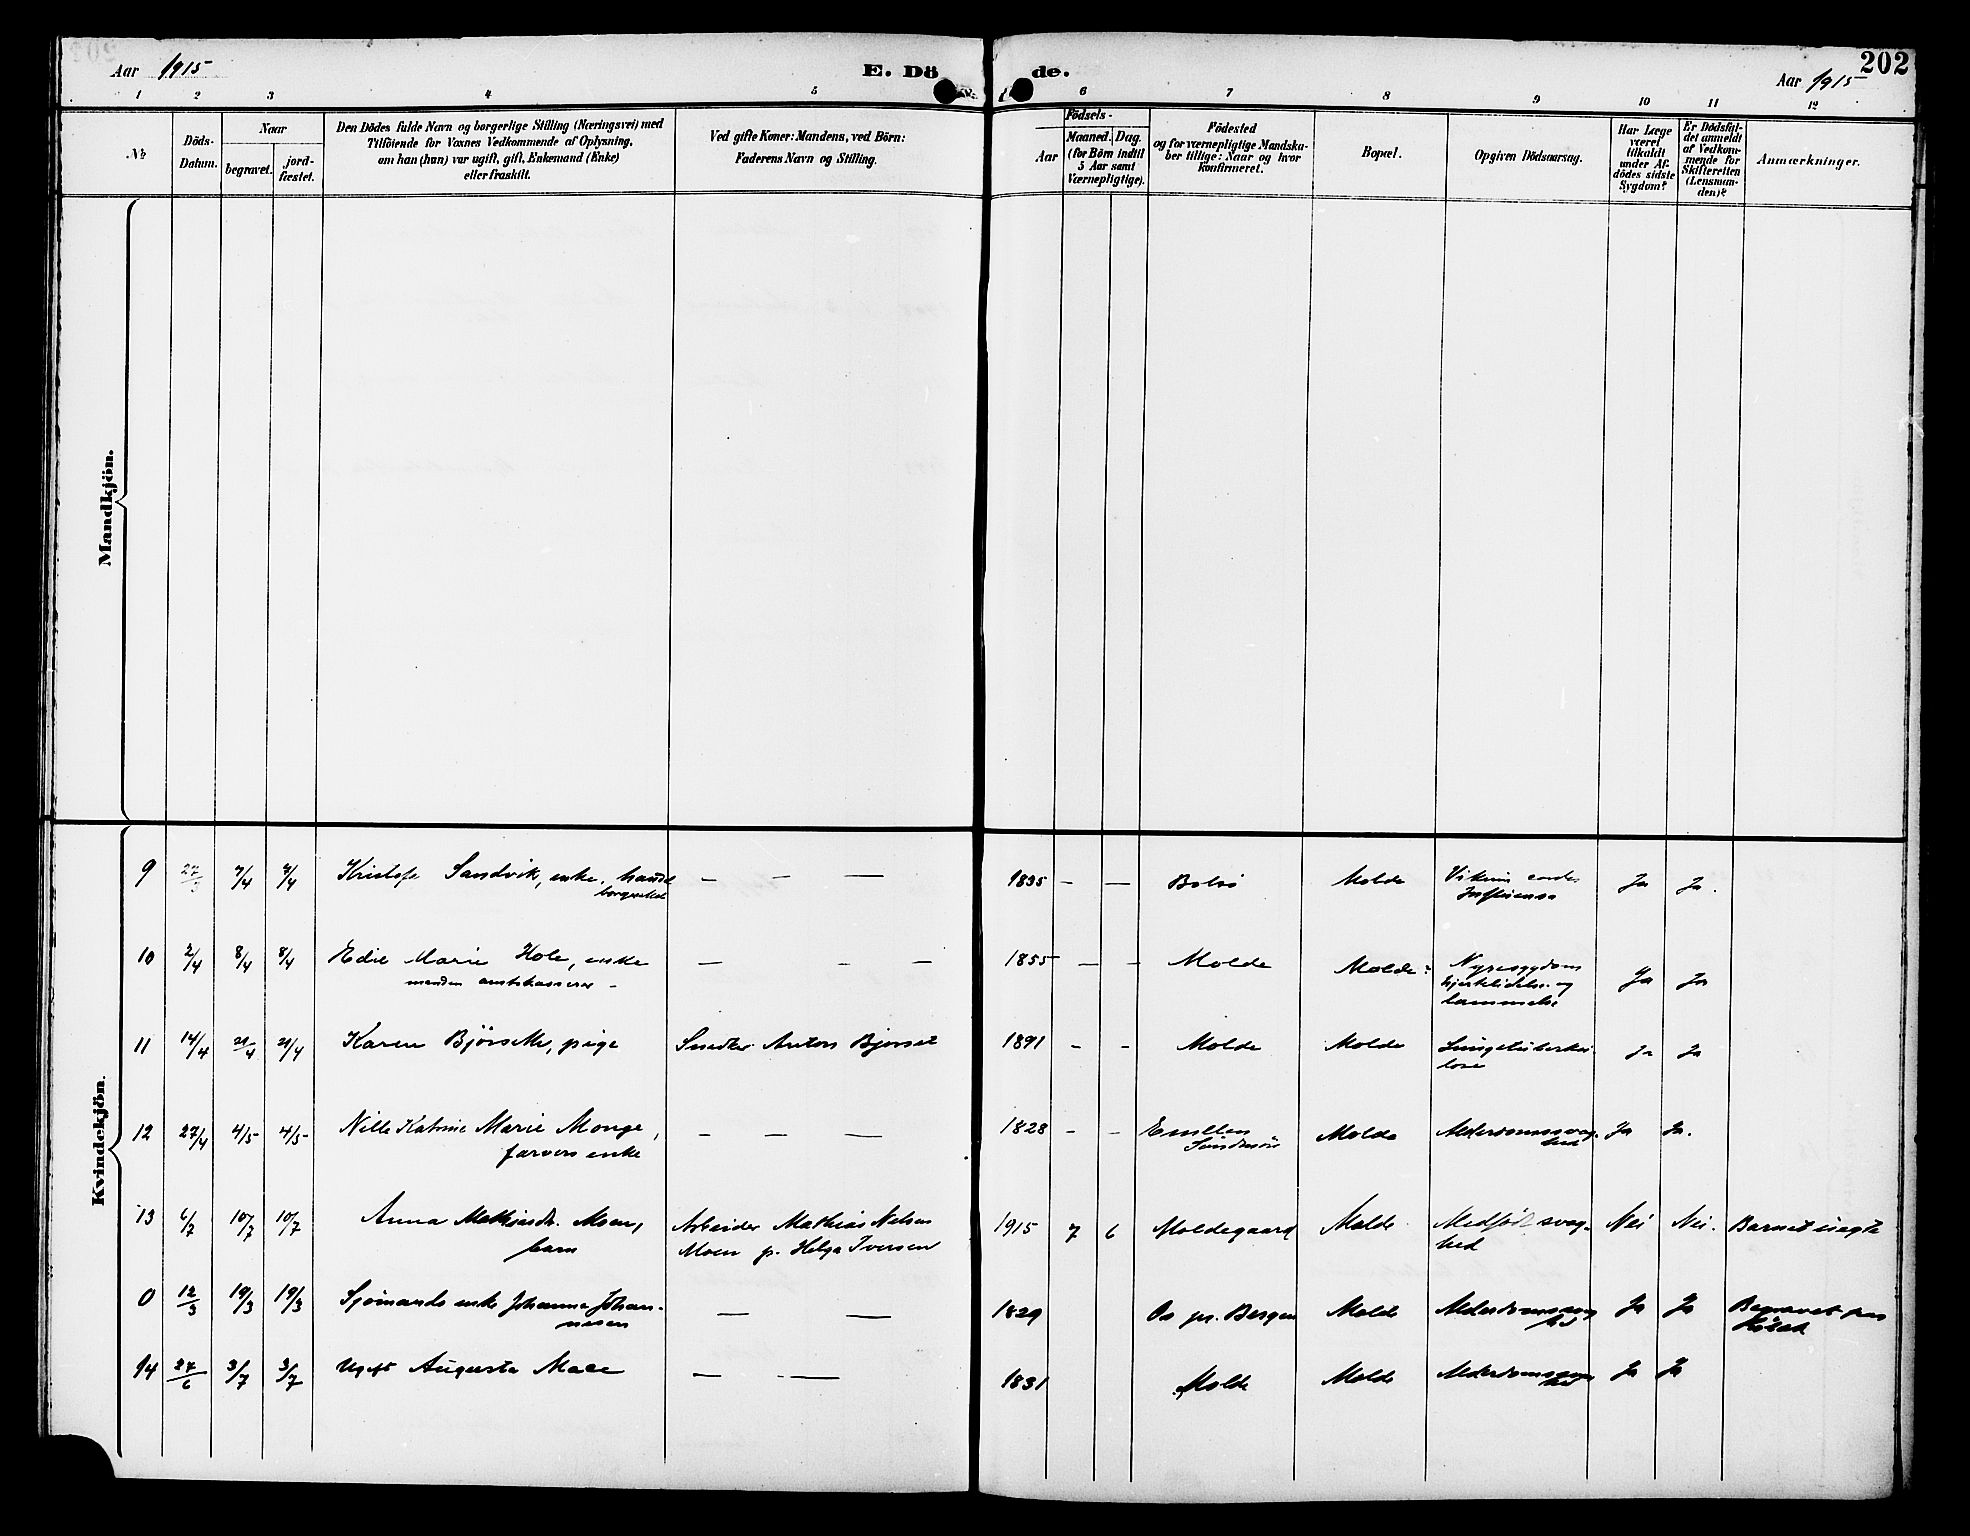 Aar 1915
E. Dö
de.
Aar 1915
202
1 2 3 4 5 6 7 8 9 10 11 12
№
Döds-
Datum.
Naar
begravet.
jord-
fæstet.
Den Dödes fulde Navn og borgerlige Stilling (Næringsvei) med
Tilföiende for Voxnes Vedkommende af Oplysning,
om han (hun) var ugift, gift, Enkemand (Enke)
eller fraskilt.
Ved gifte Koner: Mandens, ved Börn:
Faderens Navn og Stilling.
Födsels-
Aar
Maaned. Dag.
(for Börn indtil
5 Aar samt
Værnepligtige).
Födested
og for værnepligtige Mandska-
ber tillige: Naar og hvor
konfirmeret.
Bopæl.
Opgiven Dödsaarsag.
Har Læge
været
tilkaldt
under Af-
dödes sidste
Sygdom?
Er Dödsfal-
det anmeldt
af Vedkom-
mende for
Skifteretten
(Lensman-
den)?
Anmærkninger.
Mandkjön.
Kvindekjön.
9 27/3 7/4 7/4 Kristofe Sandvik, enke, — — — 1835 — — Bolsö Molde Ja Ja.
10 2/4 8/4 8/4 Edie Marie Hole, enke — — — 1855 — — Molde Molde Nyresygdom Ja Ja
manden amtskasserer hjertelidelse og
lammelse
11 14/4 21/4 21/4 Karen Björsette, pige Snedker Anton Bjørset 1891 - - Molde Molde Lungetuberku- Ja Ja
lose
12 27/4 4/5 4/5 Nille Katrine Marie Monge, — — — 1828 - - Molde Alderdomssvag- Ja Ja.
farvers enke hed
13 6/7 10/7 10/7 Anna Mathiasdr. Moen, Arbeider Mathias Nelsen 1915 7 6 Moldegaard Molde Medfödt svag- Nei Nei. Barnet uegte
barn Moen p. Helga Iversen hed
0 12/3 19/3 19/3 Sjömands enke Johanna Johan- — — 1829 Os pr. Bergen Molde Alderdomssvag Ja Ja Begravet paa
nesen hed
14 27/6 3/7 3/7 Ugift Augusta Maae — — 1831 Molde Molde Alderdomssvag Ja Ja
hed